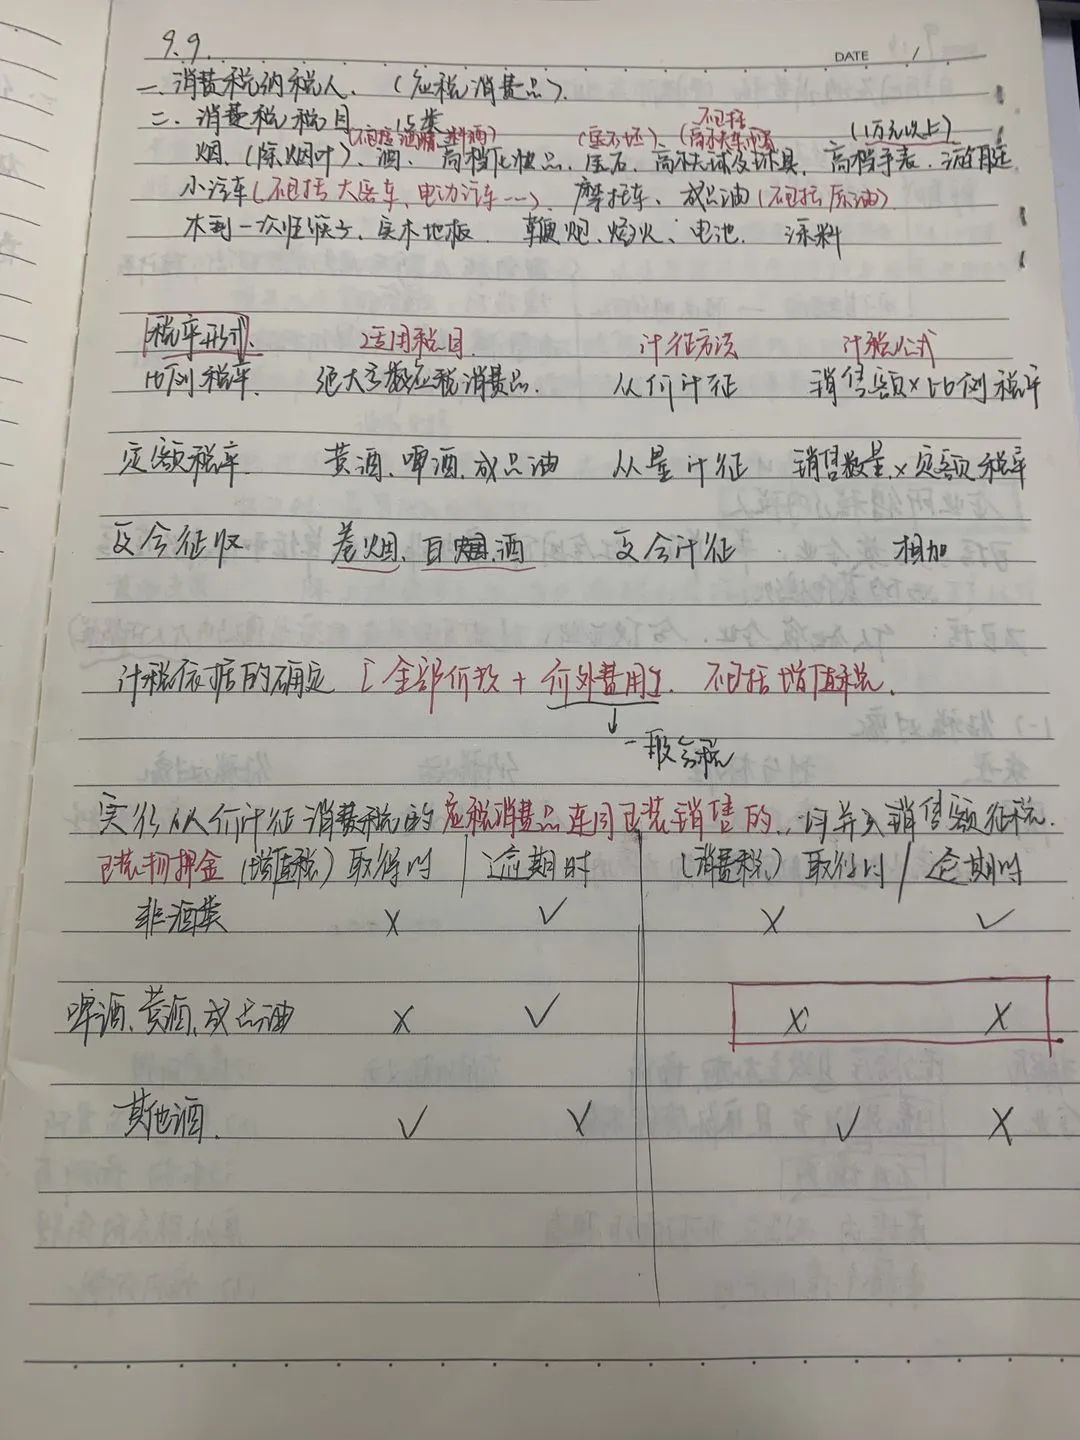 9.9.
DATE /
一. 消费税纳税人. (应税消费品).
二. 消费税税目 15类
(不包括酒精 料酒) (宝石坯) 不包括 (1万元以上)
烟. (除烟叶). 酒. 高档化妆品. 宝石. 高尔夫球及球具. 高档手表. 游艇
小汽车(不包括大客车、电动汽车…). 摩托车、成品油(不包括原油).
木制一次性筷子、实木地板. 鞭炮、焰火、电池. 涂料
税率形式. 适用税目. 计征方法 计税公式
比例税率. 绝大多数应税消费品. 从价计征 销售额×比例税率
定额税率 黄酒、啤酒、成品油 从量计征 销售数量×定额税率
复合征收 卷烟、白酒 复合计征 相加
计税依据的确定 [全部价款+价外费用]. 不包括增值税.
↓
一般含税
实行从价计征消费税的应税消费品连同包装销售的. 均并入销售额征税.
包装物押金 (增值税) 取得时 / 逾期时 (消费税) 取得时 / 逾期时
非酒类 × ✓ × ✓
啤酒、黄酒、成品油 × ✓ × ×
其他酒. ✓ × ✓ ×